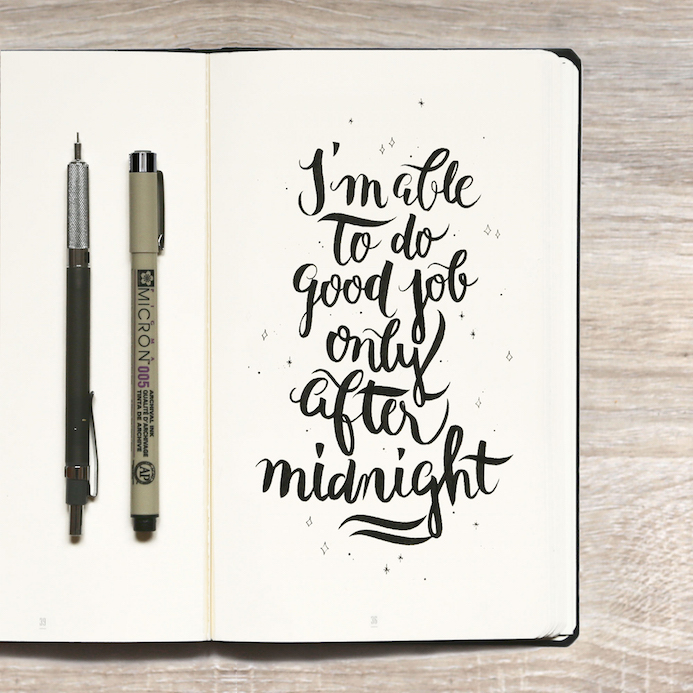 I'm able
to do
good job
only
after
midnight
MICRON 005
ARCHIVAL INK
QUALITÉ D'ARCHIVAGE
TINTA DE ARCHIVE
AP